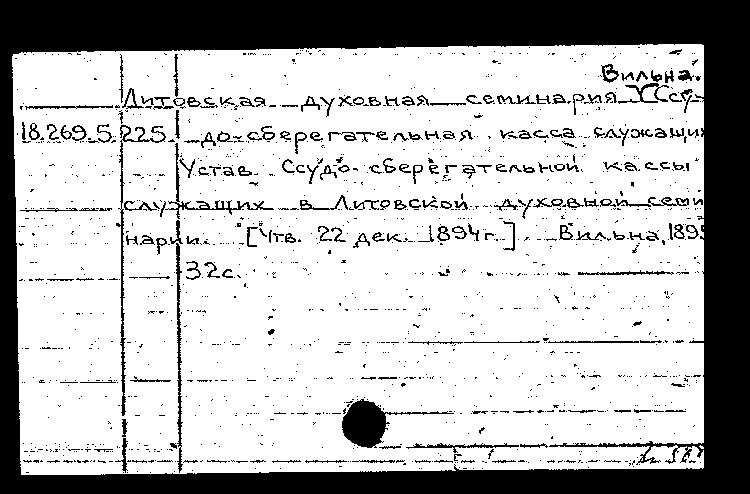 Вильна.
Литовская духовная семинария Ссу-
18.269.5.225. до-сберегательная касса служащи
Устав Ссудо-сберегательной кассы
служащих в Литовской духовной семи
нарии. [Утв. 22 дек. 1894 г.] Вильна, 1895
32 с.